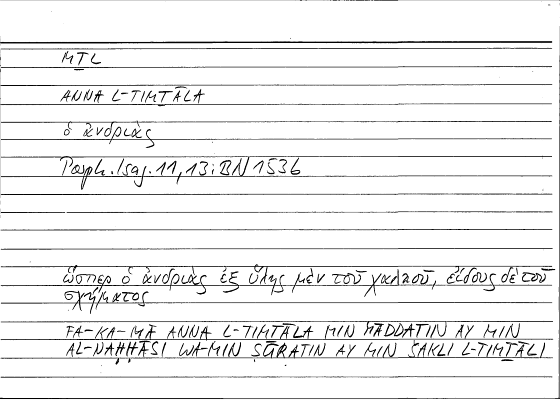 MṮL
ANNA L-TIMṮĀLA
ὁ ἀνδριὰς
Porph. Isag. 11,13: BN 153b
ὥσπερ ὁ ἀνδριὰς ἐξ ὕλης μὲν τοῦ χαλκοῦ, εἴδους δὲ τοῦ
σχήματος
FA-KA-MĀ ANNA L-TIMṮĀLA MIN MĀDDATIN AY MIN
AL-NAḤḤĀSI WA-MIN ṢŪRATIN AY MIN ŠAKLI L-TIMṮĀLI